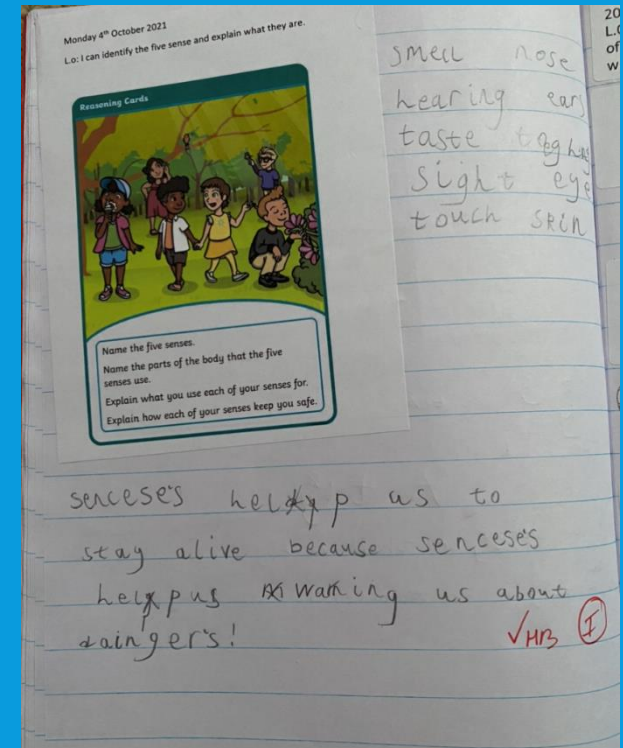 Monday 4th October 2021
L.o: I can identify the five sense and explain what they are.
Reasoning Cards
Name the five senses.
Name the parts of the body that the five
senses use.
Explain what you use each of your senses for.
Explain how each of your senses keep you safe.
smell nose
hearing ears
taste
sight eye
touch skin
20
L.o
of
w
senceses help us to
stay alive because senceses
help us warning us about
dainger's!
✓HB I